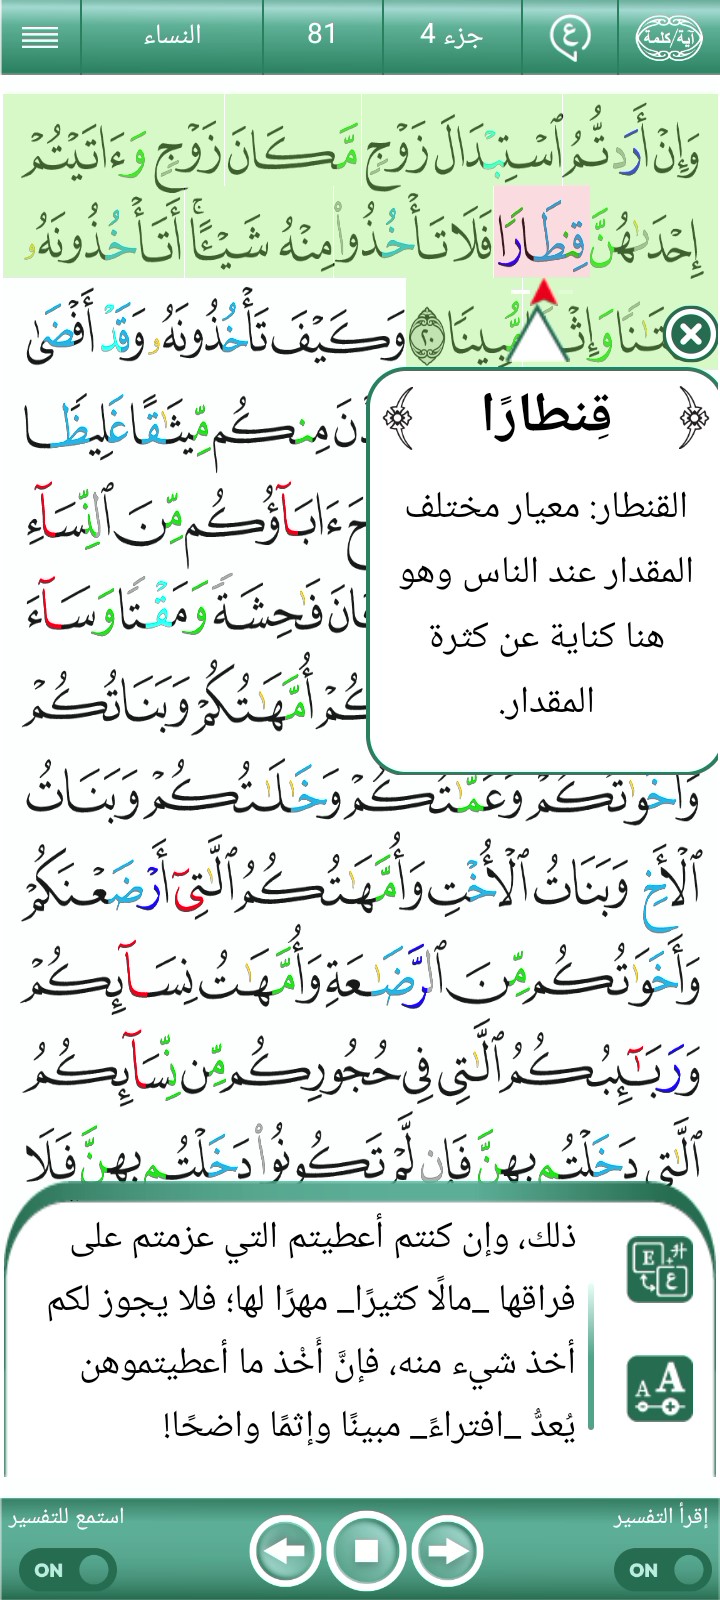 النساء
81
جزء 4
ع
آية/كلمة
وَإِنْ أَرَدتُّمُ ٱسْتِبْدَالَ زَوْجٍ مَّكَانَ زَوْجٍ وَءَاتَيْتُمْ
إِحْدَىٰهُنَّ قِنطَارًا فَلَا تَأْخُذُوا۟ مِنْهُ شَيْـًٔا ۚ أَتَأْخُذُونَهُۥ
تَـٰنًا وَإِثْمًا مُّبِينًا ٢٠ وَكَيْفَ تَأْخُذُونَهُۥ وَقَدْ أَفْضَىٰ
ذْنَ مِنكُم مِّيثَـٰقًا غَلِيظًا
ءَابَآؤُكُم مِّنَ ٱلنِّسَآءِ
انَ فَـٰحِشَةً وَمَقْتًا وَسَآءَ
كُمْ أُمَّهَـٰتُكُمْ وَبَنَاتُكُمْ
وَأَخَوَٰتُكُمْ وَعَمَّـٰتُكُمْ وَخَـٰلَـٰتُكُمْ وَبَنَاتُ
ٱلْأَخِ وَبَنَاتُ ٱلْأُخْتِ وَأُمَّهَـٰتُكُمُ ٱلَّـٰتِىٓ أَرْضَعْنَكُمْ
وَأَخَوَٰتُكُم مِّنَ ٱلرَّضَـٰعَةِ وَأُمَّهَـٰتُ نِسَآئِكُمْ
وَرَبَـٰٓئِبُكُمُ ٱلَّـٰتِى فِى حُجُورِكُم مِّن نِّسَآئِكُمُ
ٱلَّـٰتِى دَخَلْتُم بِهِنَّ فَإِن لَّمْ تَكُونُوا۟ دَخَلْتُم بِهِنَّ فَلَا
قِنطارًا
القنطار: معيار مختلف
المقدار عند الناس وهو
هنا كناية عن كثرة
المقدار.
ذلك، وإن كنتم أعطيتم التي عزمتم على
فراقها _مالًا كثيرًا_ مهرًا لها؛ فلا يجوز لكم
أخذ شيء منه، فإنَّ أَخْذ ما أعطيتموهن
يُعدُّ _افتراءً_ مبينًا وإثمًا واضحًا!
E
ع
A A
إقرأ التفسير
استمع للتفسير
ON
ON